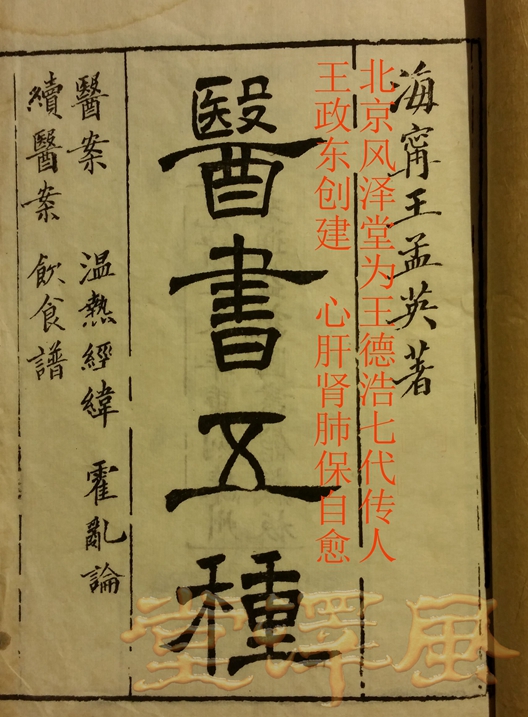 海寧王孟英著
北京风泽堂为王德浩七代传人
王政东创建 心肝肾肺保自愈
醫書五種
醫案 温熱經緯 霍亂論
續醫案 飲食譜
風澤堂